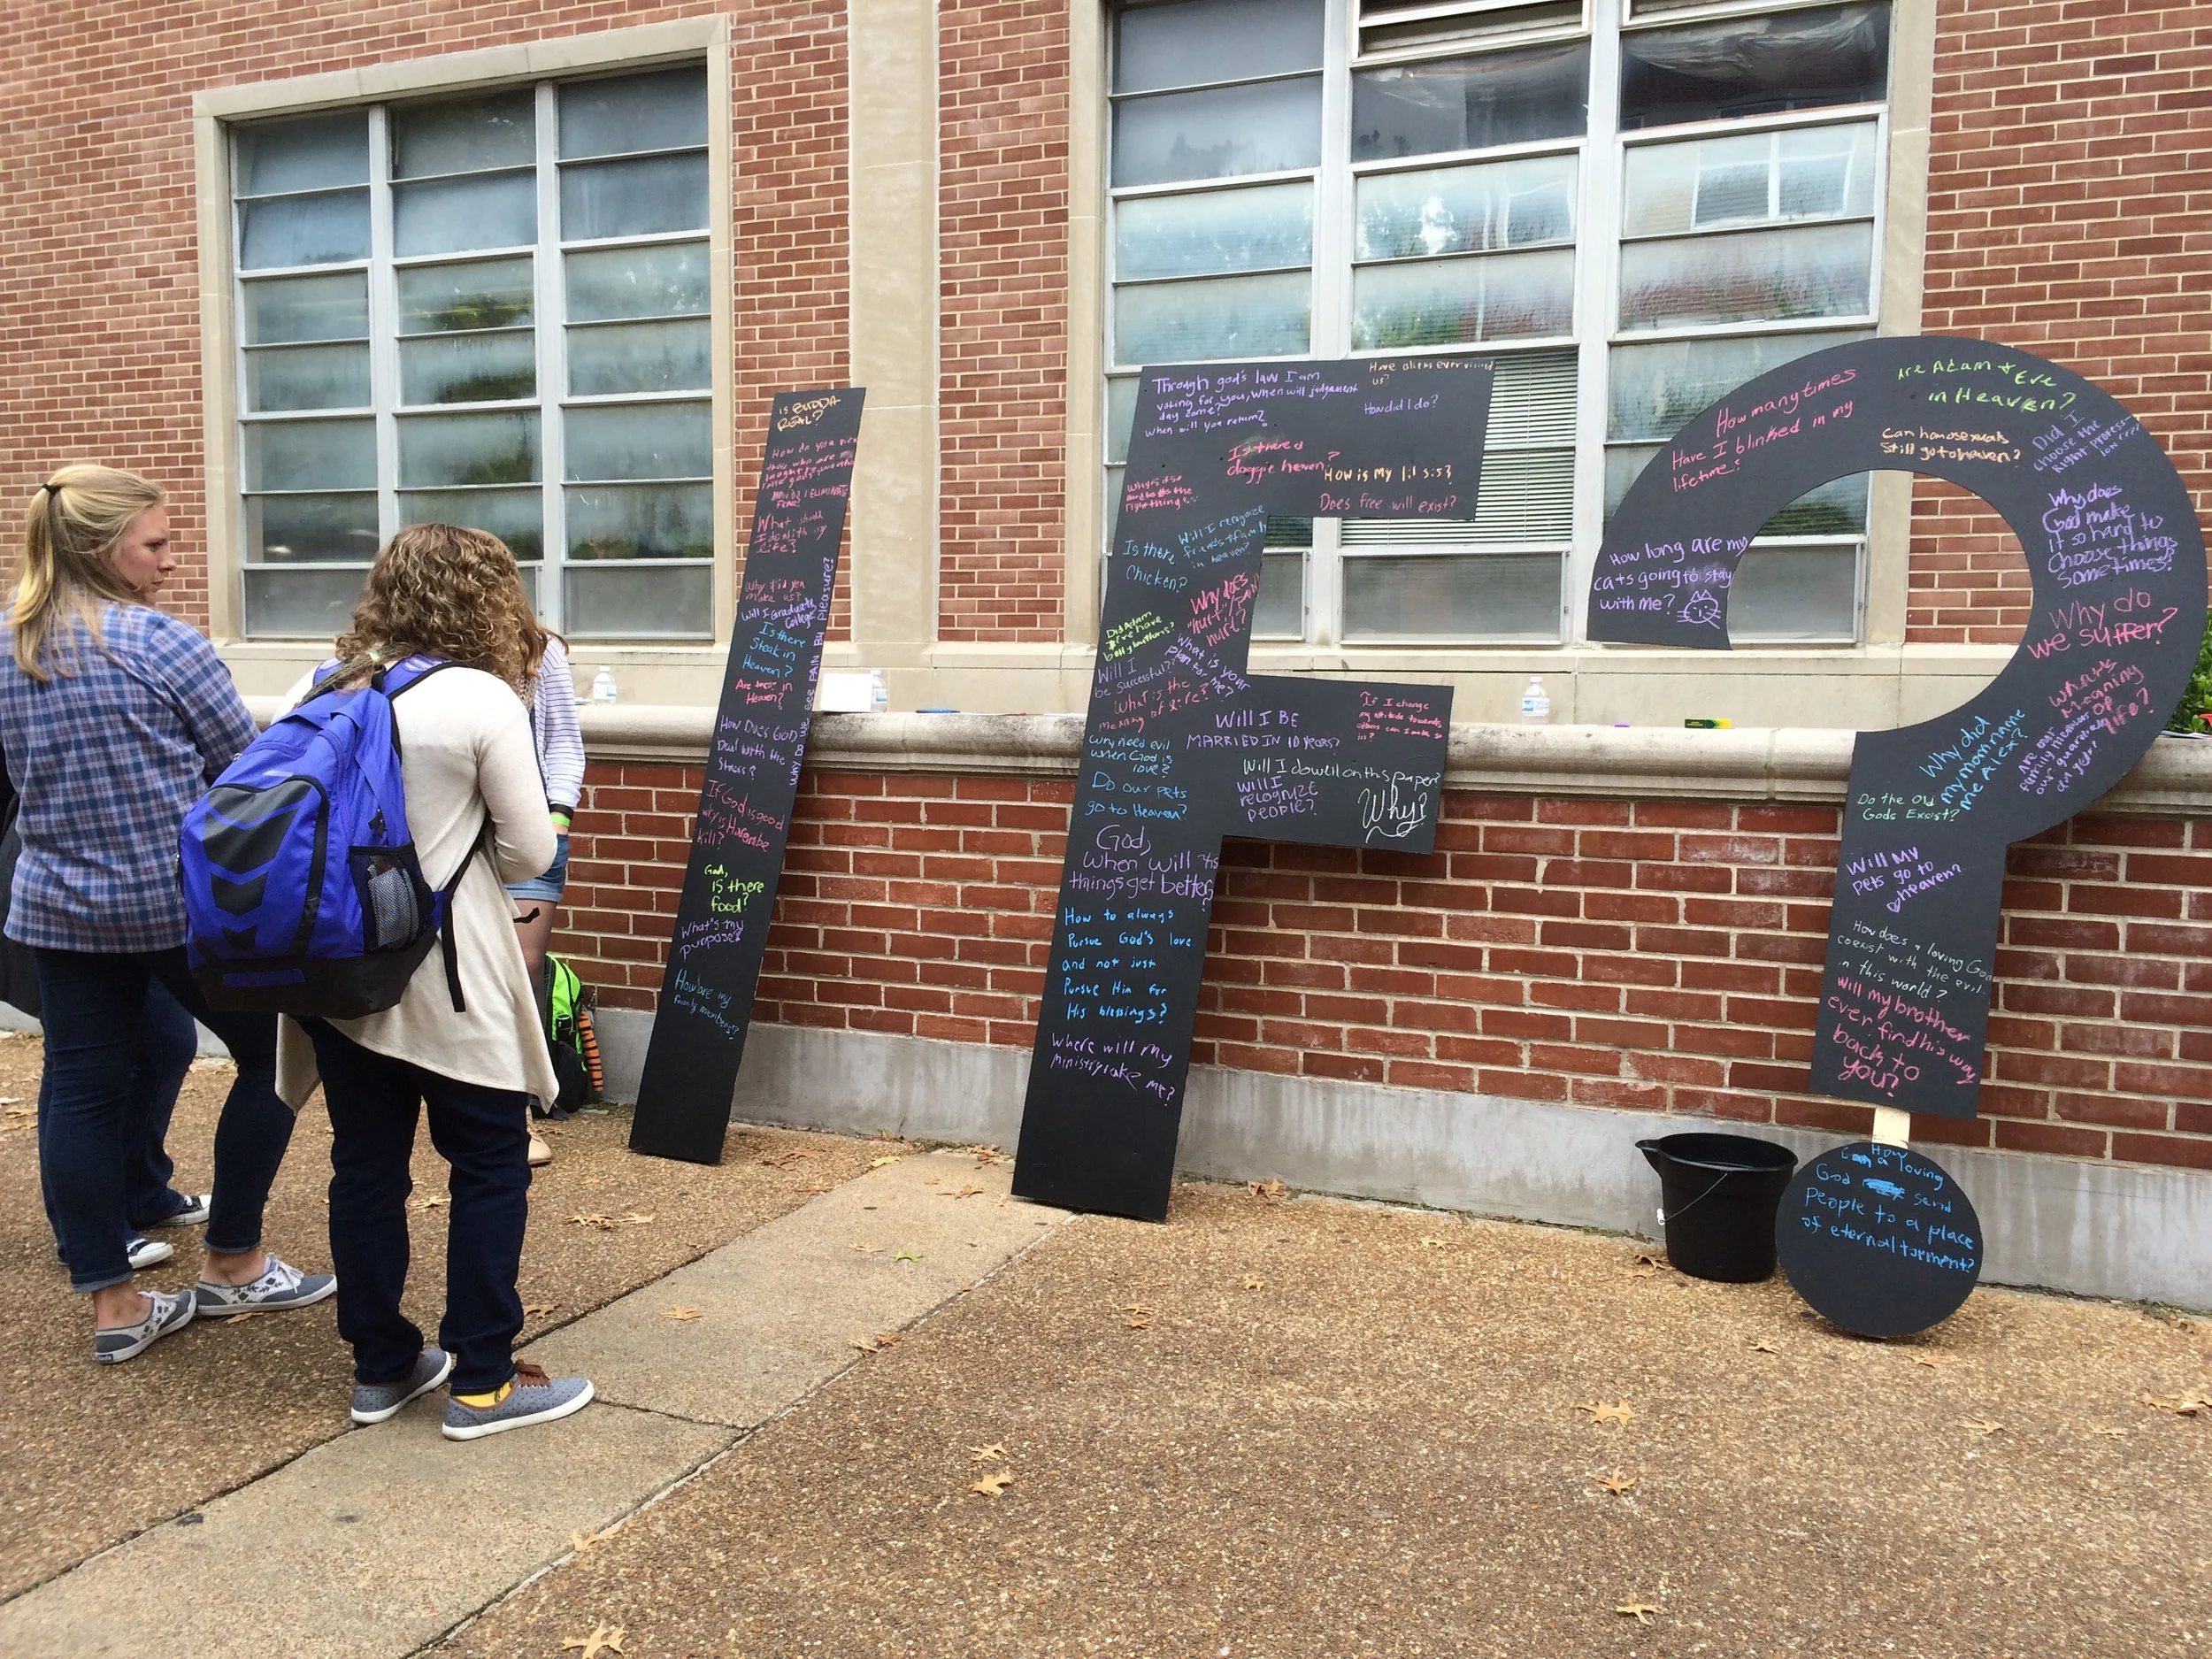 is BUDDA
REAL?
How do you view
those who are
taught to worship
false gods?
How do I ELIMINATE
Fear?
What should
I do with my
life?
Why did you
make us?
Will I Graduate
College?
Is there
Steak in
Heaven?
Are tacos in
Heaven?
How Does God
Deal with the
Stress?
Why do we see PAIN By pleasure?
If God is good
why is Harambe
kill?
God,
is there
food?
What's my
purpose?
How are my
family members?
Through god's law I am
voting for you, when will judgement
day come?
when will you return?
Have aliens ever visited
us?
How did I do?
Is there a
doggie heaven?
How is My lil sis?
Does free will exist?
Why is it so
hard to do the
right thing?
Will I recognize
friends + family
in heaven?
Is there
Chicken?
Why does
"hurt"
hurt?
Did Adam
& Eve have
belly buttons?
Will I
be successful?
What is your
plan for me?
What is the
meaning of life?
Why need evil
when God is
love?
Will I BE
MARRIED IN 10 YEARS?
If I change
my attitude towards
others can I make
it?
Do our pets
go to Heaven?
Will I do well on this paper?
Will I
recognize
people?
Why?
God,
When will
things get better?
How to always
Pursue God's love
and not just
Pursue Him for
His blessings?
Where will my
ministry take me?
How many times
Have I blinked in my
lifetime?
Are Adam & Eve
in Heaven?
Can homosexuals
Still go to heaven?
Did I
choose the
Right Profession
How long are my
cats going to stay
with me?
Why does
God make
it so hard to
Choose things
Sometimes?
Why do
we suffer?
Whats
meaning
of
life?
Are our
family members
our guardian
angels?
Why did
my mom name
me Alex?
Do the Old
Gods Exsist?
Will My
pets go to
heaven?
How does a loving God
coexist with the evil
in this world?
Will my brother
ever find his way
back to
you?
How
a loving
God send
People to a place
of eternal torment?